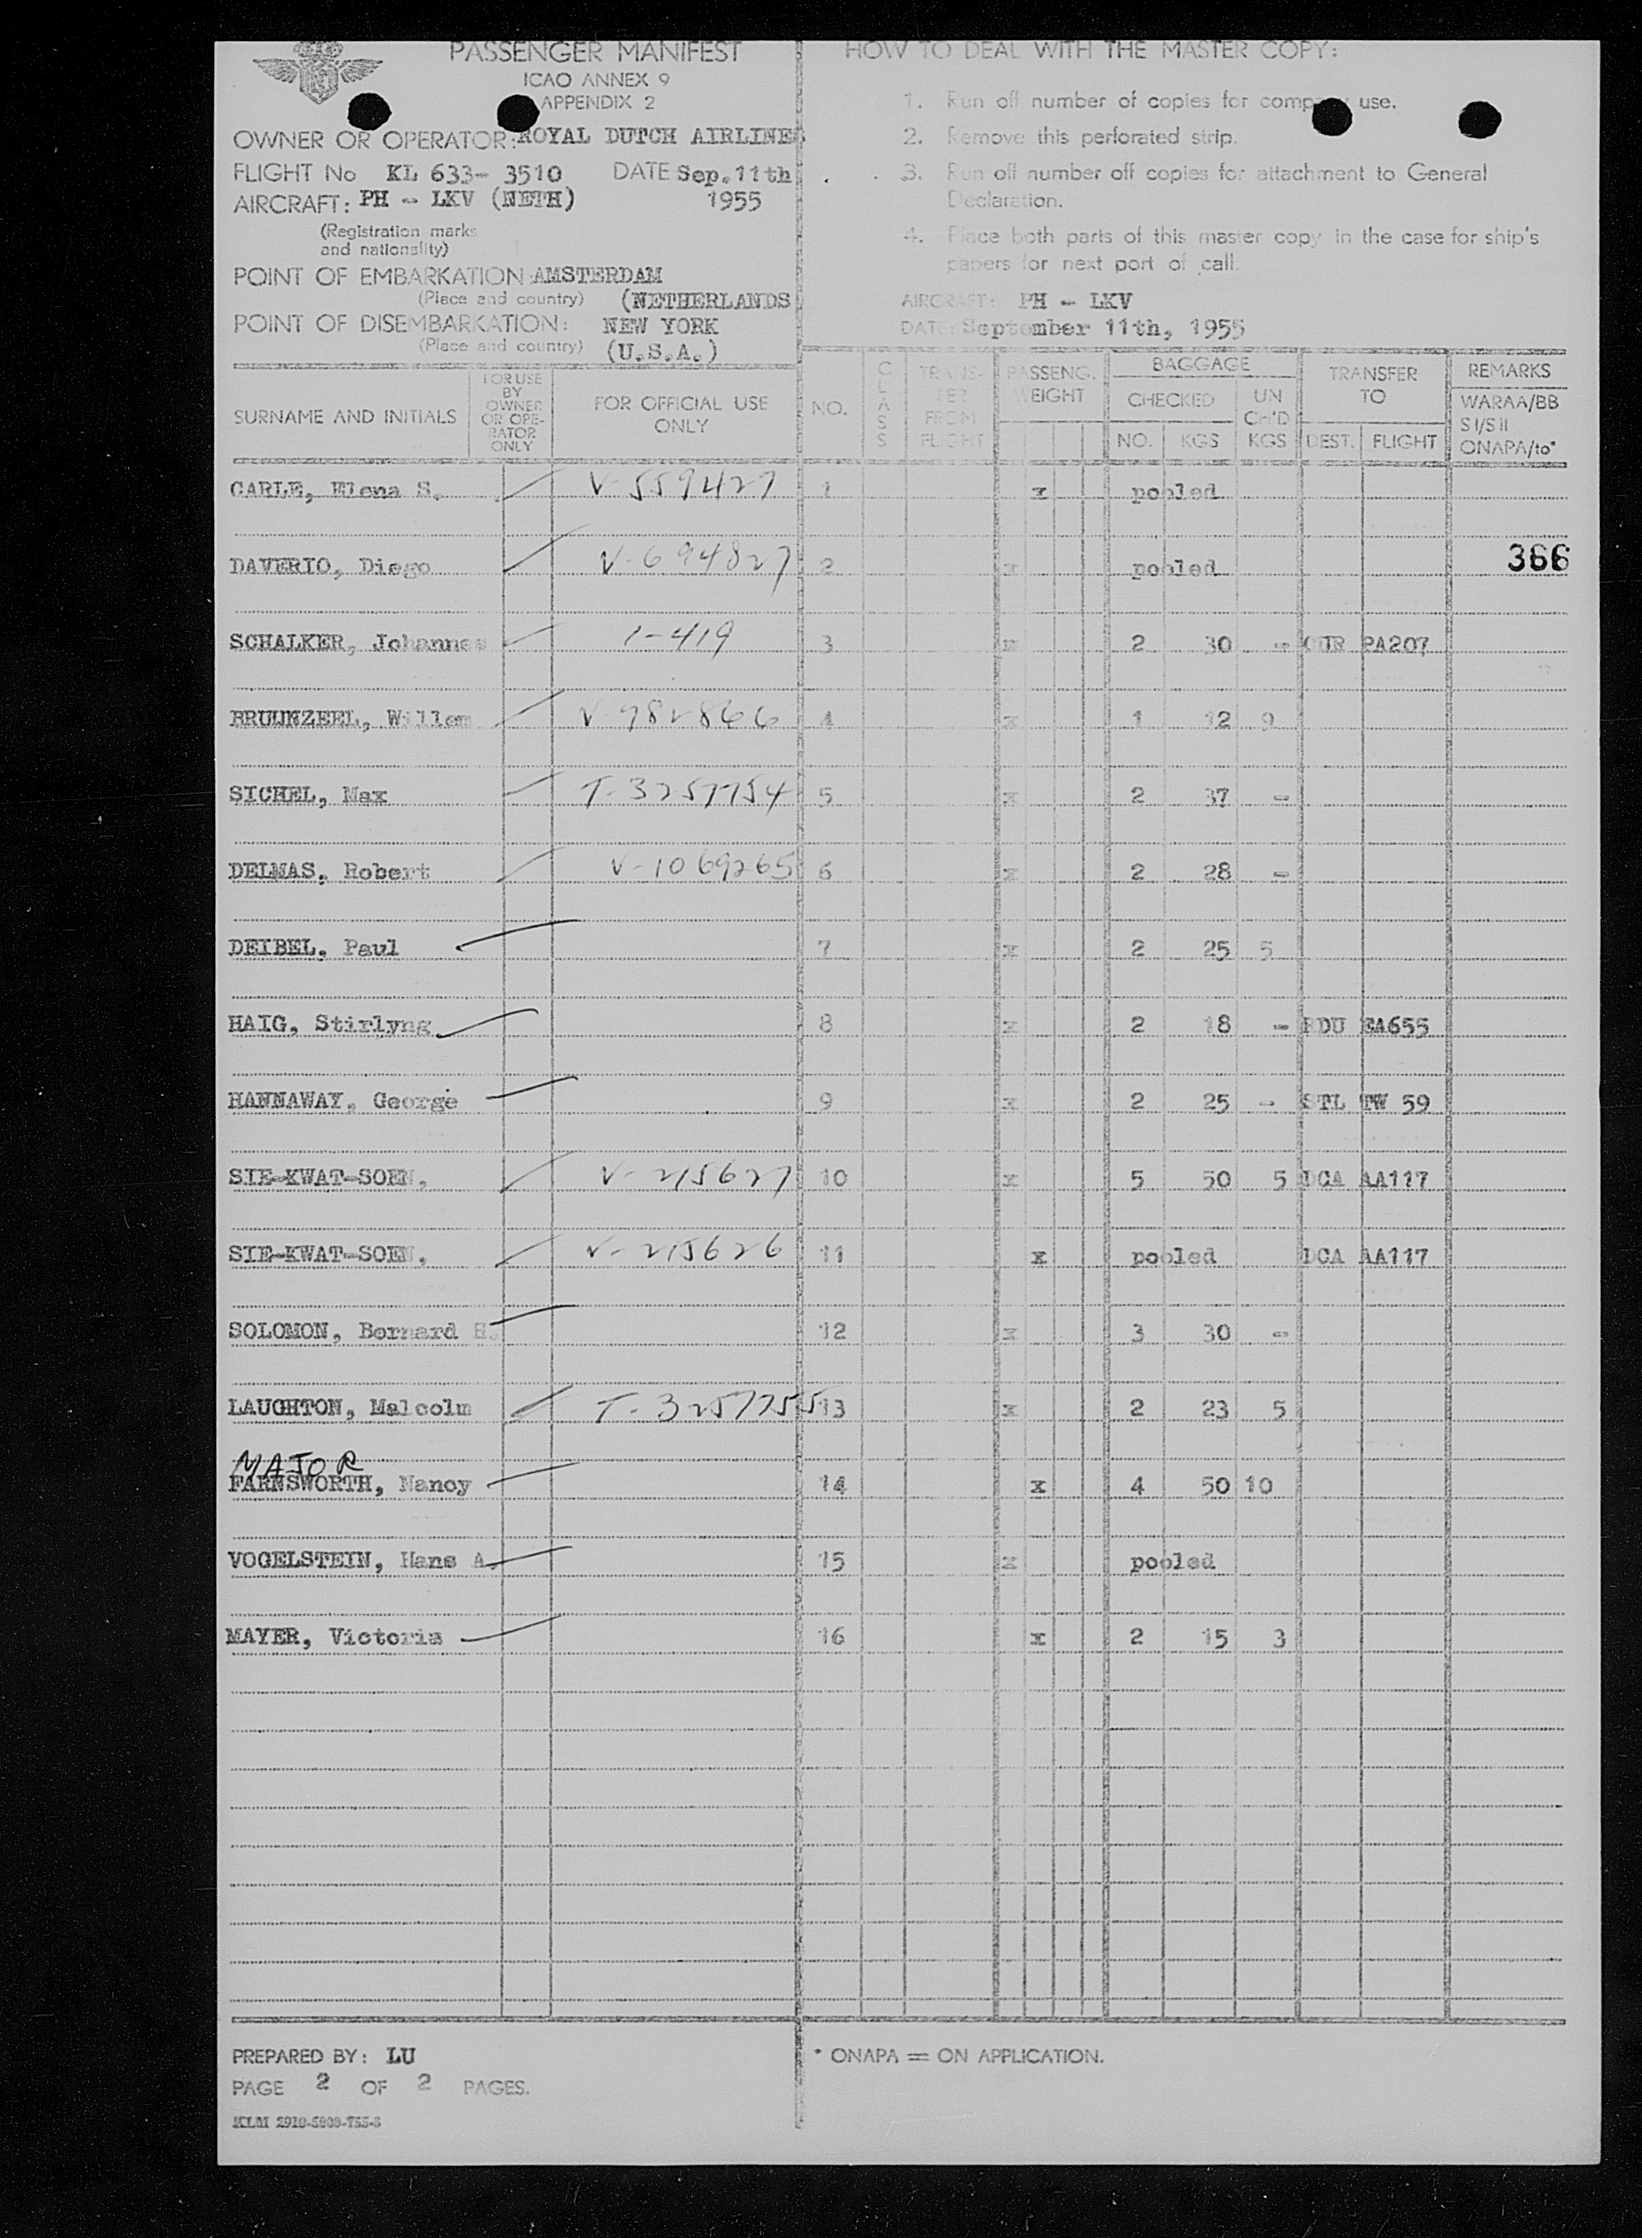 PASSENGER MANIFEST
ICAO ANNEX 9
APPENDIX 2
OWNER OR OPERATOR: ROYAL DUTCH AIRLINES
FLIGHT No KL 633- 3510 DATE Sep. 11th
AIRCRAFT: PH - LKV (NETH) 1955
(Registration marks
and nationality)
POINT OF EMBARKATION AMSTERDAM
(Place and country) (NETHERLANDS
POINT OF DISEMBARKATION: NEW YORK
(Place and country) (U.S.A.)
HOW TO DEAL WITH THE MASTER COPY:
1. Run off number of copies for company use.
2. Remove this perforated strip.
3. Run off number off copies for attachment to General
Declaration.
4. Place both parts of this master copy in the case for ship's
papers for next port of call.
AIRCRAFT: PH - LKV
DATE: September 11th, 1955
SURNAME AND INITIALS FOR USE BY OWNER OR OPE- RATOR ONLY FOR OFFICIAL USE ONLY NO. CLASS TRANS- FER FROM FLIGHT PASSENG. WEIGHT BAGGAGE CHECKED NO. KGS UN CH'D KGS TRANSFER TO DEST. FLIGHT REMARKS WARAA/BB SI/SII ONAPA/to*
CARLE, Elena S. V-559427 1 x pooled
DAVERIO, Diego V-694827 2 x pooled
366
SCHALKER, Johannes 1-419 3 x 2 30 - CUR PA207
BRUIJNZEEL, Willem V-982866 4 x 1 12 9
SICHEL, Max T-3257754 5 x 2 37 -
DELMAS, Robert V-1069265 6 x 2 28 -
DEIBEL, Paul 7 x 2 25 5
HAIG, Stirlyng 8 x 2 18 - RDU EA655
HANNAWAY, George 9 x 2 25 - STL TW 59
SIE-KWAT-SOEN, V-215627 10 x 5 50 5 DCA AA117
SIE-KWAT-SOEN, V-215626 11 x pooled DCA AA117
SOLOMON, Bernard H. 12 x 3 30 -
LAUGHTON, Malcolm T-3257755 13 x 2 23 5
MAJOR
FARNSWORTH, Nancy 14 x 4 50 10
VOGELSTEIN, Hans A. 15 x pooled
MAYER, Victoria 16 x 2 15 3
PREPARED BY: LU
PAGE 2 OF 2 PAGES.
* ONAPA = ON APPLICATION.